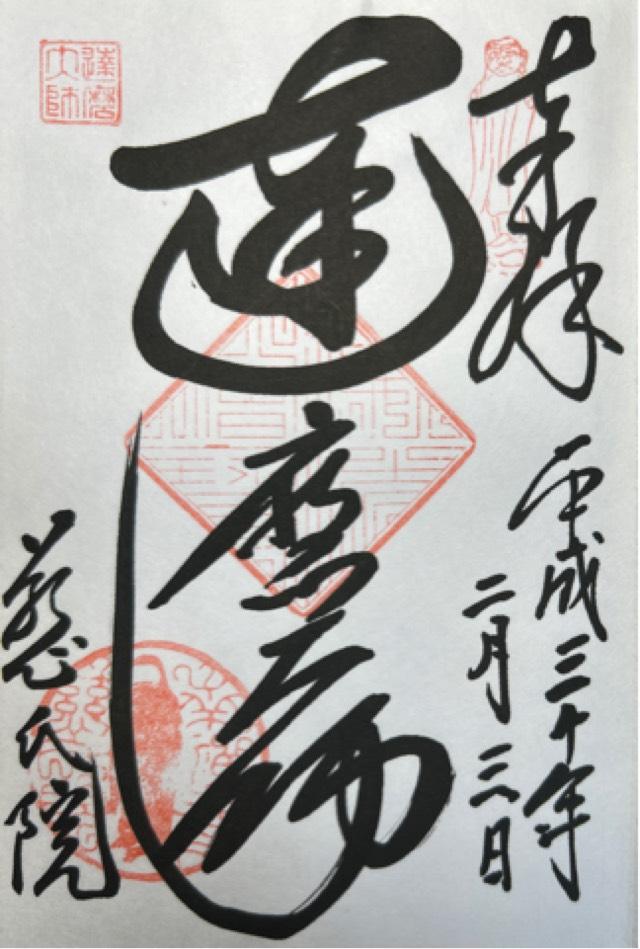 奉拝
平成三十年
二月三日
達磨大師
慈氏院
達磨
大師